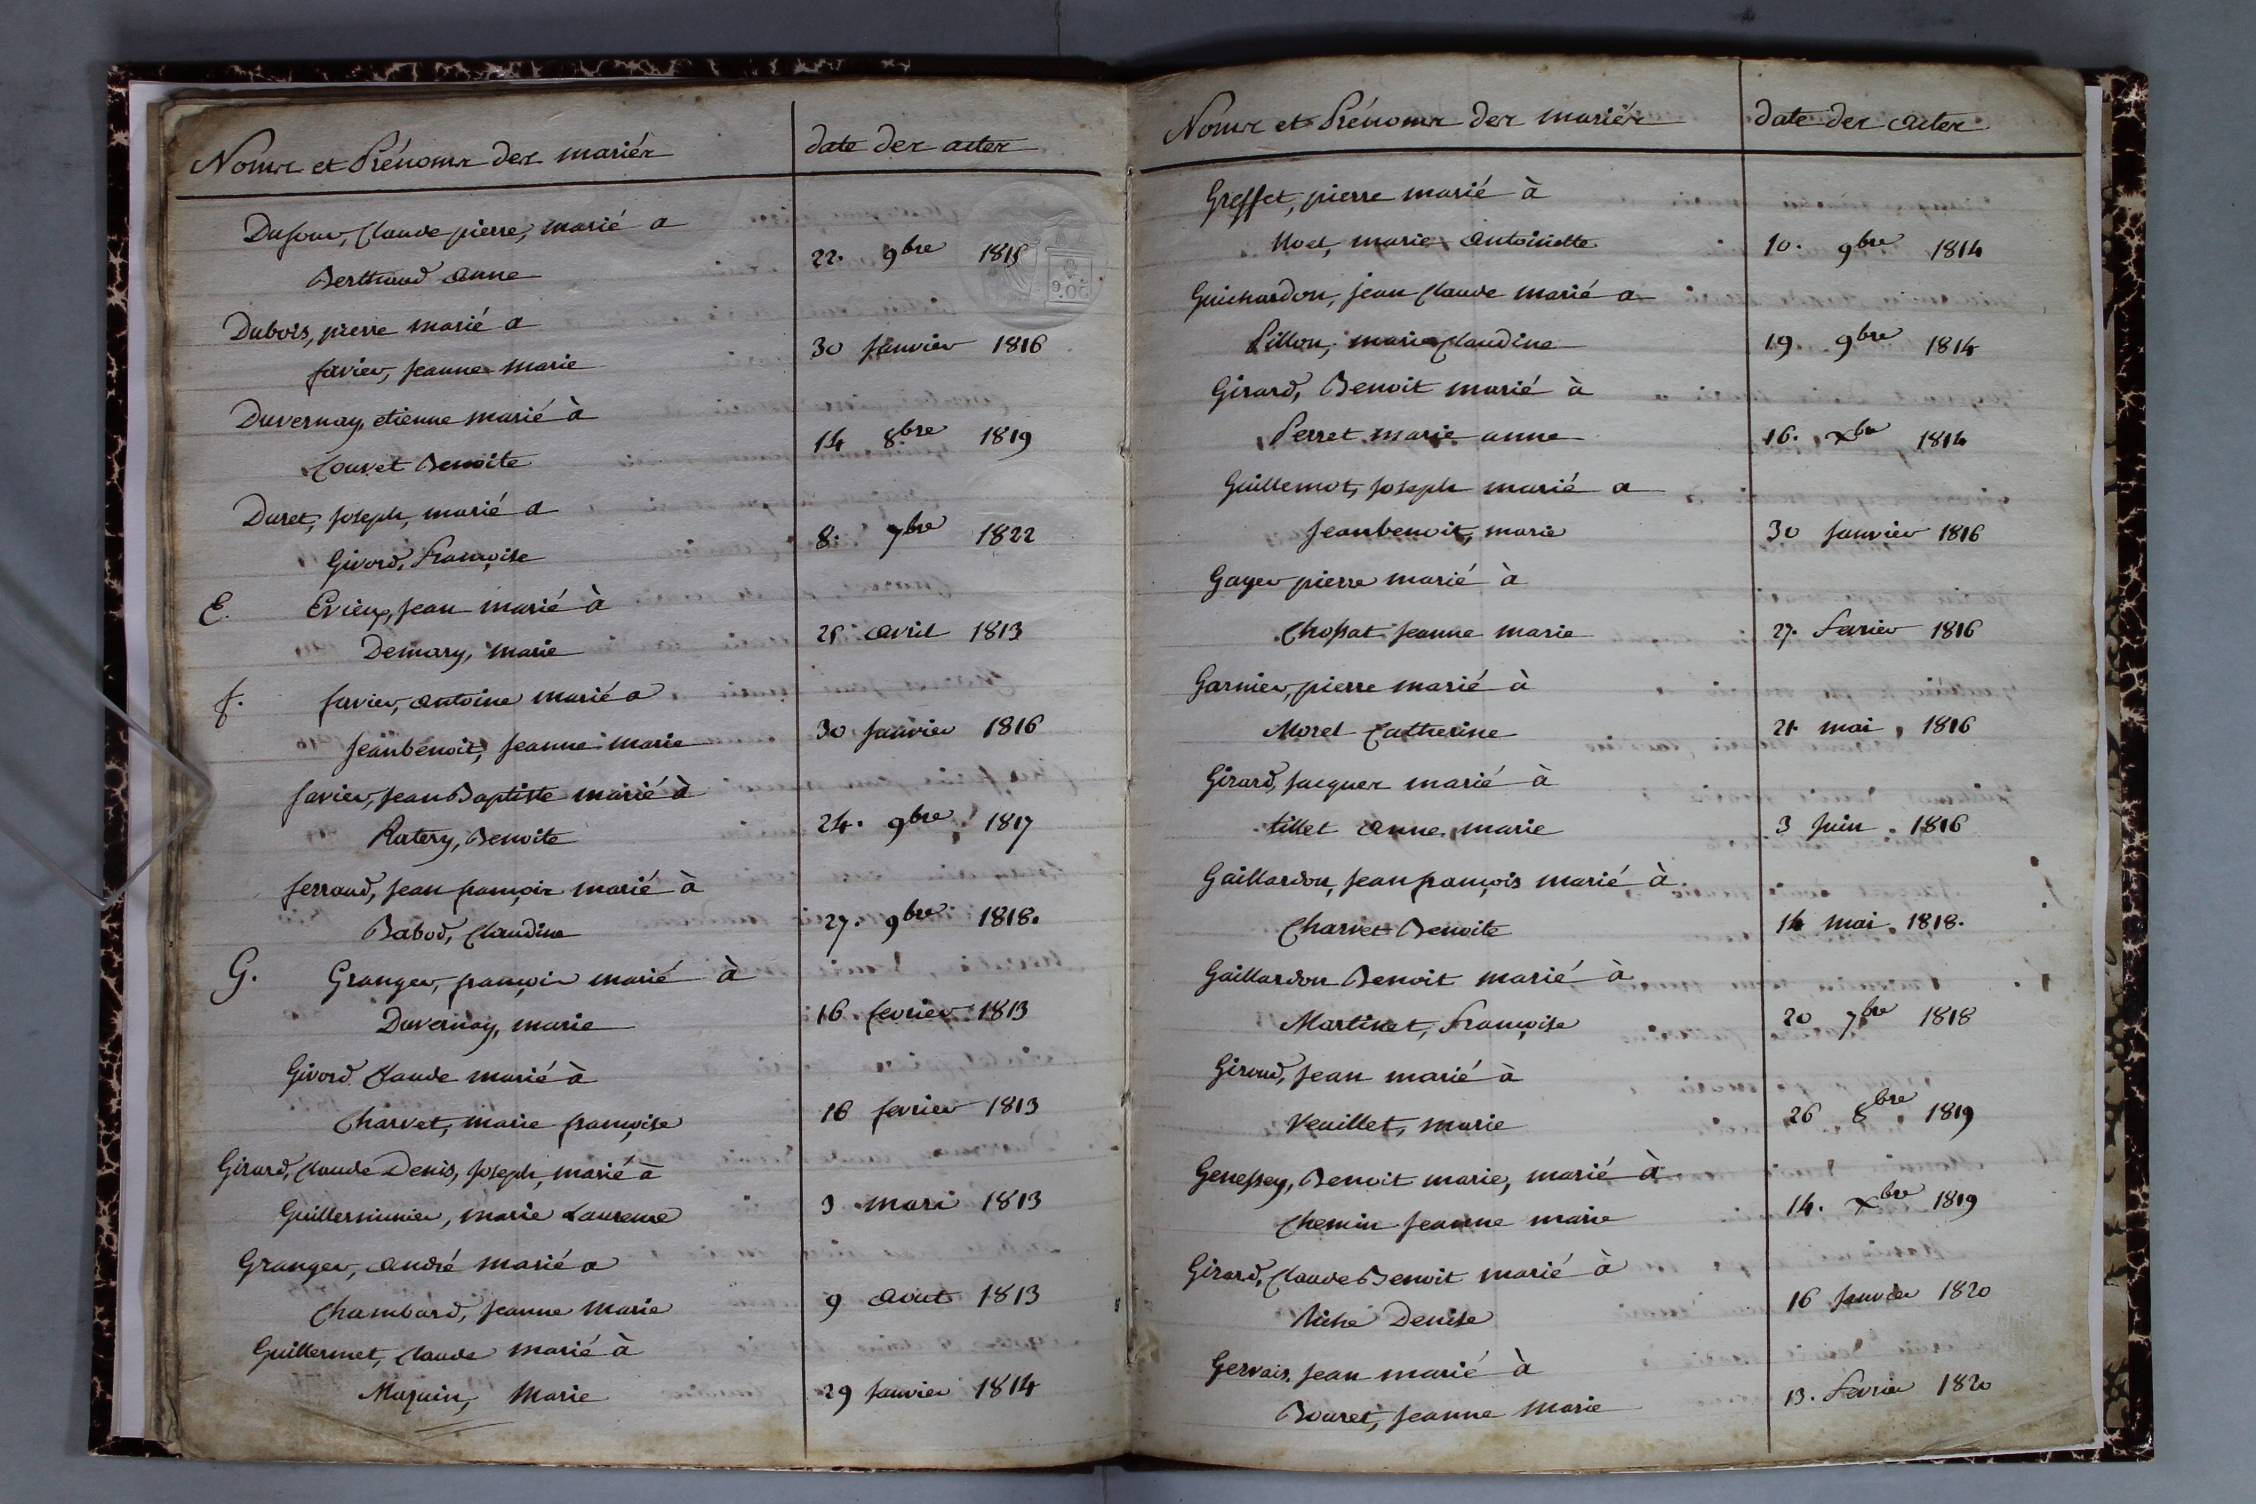 Noms et Prénoms des mariés
date des actes
Dufour, Claude pierre, marié a
Berthaud anne
22. 9bre 1815
Dubois, pierre marié a
favier, Jeanne marie
30 Janvier 1816
Duvernay, etienne marié à
Couvet Benoite
14 8bre 1819
Duret, Joseph, marié a
Givord, Françoise
8. 7bre 1822
E. Evieux, Jean marié à
Demary, marie
avril 1813
f. favier, antoine marié a
Jeanbenoit, Jeanne marie
30 Janvier 1816
favier, Jean Baptiste marié à
Ratery, Benoite
24. 9bre 1817
ferraud, Jean françois marié à
Babod, Claudine
27. 9bre 1818.
G. Granger, françois marié à
Duvernay, marie
16 fevrier 1813
Givord Claude marié à
Charvet, marie françoise
16 fevrier 1813
Girard, Claude Denis, Joseph, marié à
Guillerminier, marie Laurence
3 mars 1813
Granger, andré marié a
Chambard, Jeanne Marie
9 aout 1813
Guillermet, Claude marié à
Maquin, Marie
29 Janvier 1814
Noms et Prénoms des mariés
date des actes
Greffet, pierre marié à
Noel, marie antoinette
10. 9bre 1814
Guichardon, jean Claude marié a
Pillon, marie Claudine
19 9bre 1814
Girard, Benoit marié à
Perret marie anne
16. Xbre 1814
Guillemot, Joseph marié a
Jeanbenoit, marie
30 Janvier 1816
Gayer pierre marié à
Chossat Jeanne marie
27. Fevrier 1816
Garnier, pierre marié à
Morel Catherine
21 mai 1816
Girard, Jacques marié à
tillet anne marie
3 Juin 1816
Gaillardon, Jean françois marié à
Charvet Benoite
14 mai 1818.
Gaillardon Benoit marié à
Martinet, Françoise
20 7bre 1818
Giroud, Jean marié à
Veuillet, marie
26 8bre 1819
Genessey, Benoit marie, marié à
Chemin Jeanne marie
14. Xbre 1819
Girard, Claude Benoit marié à
Riche Denise
16 Janvier 1820
Gervais, Jean marié à
Bouret, Jeanne Marie
13. Fevrier 1820